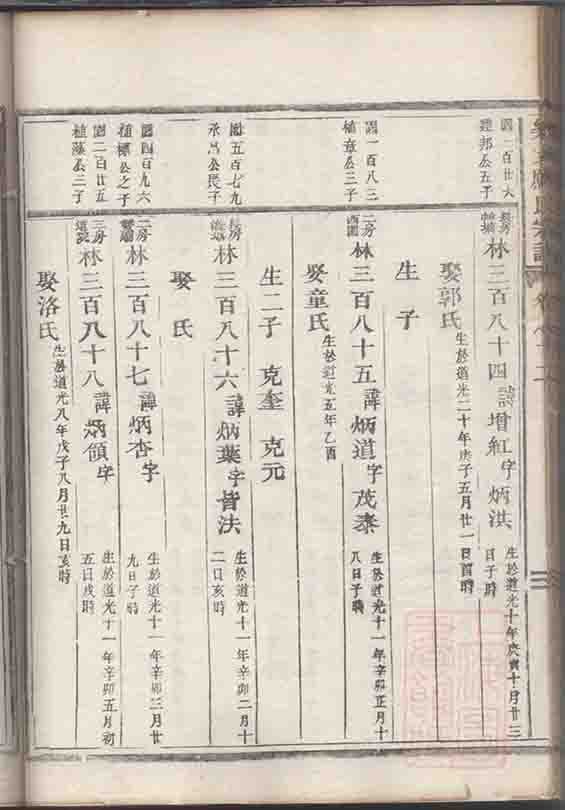 建邦公五子
長房
林三百八十四 諱增紅 字炳洪
生於道光十年庚寅十月廿三日子時
娶郭氏
生於道光二十年庚子五月廿一日酉時
生子
國一百八三
植章公三子
二房
林三百八十五 諱炳道 字茂泰
生於道光十一年辛卯正月十八日子時
娶童氏
生於道光五年乙酉
生二子 克奎 克元
國五百七九
承呂公長子
長房
林三百八十六 諱炳葉 字皆法
生於道光十一年辛卯二月十二日亥時
娶 氏
國四百九六
植標公之子
二房
林三百八十七 諱炳杏 字
生於道光十一年辛卯三月廿九日子時
國二百廿五
植藻公三子
三房
林三百八十八 諱炳領 字
生於道光十一年辛卯五月初五日戌時
娶洛氏
生於道光八年戊子八月廿九日亥時